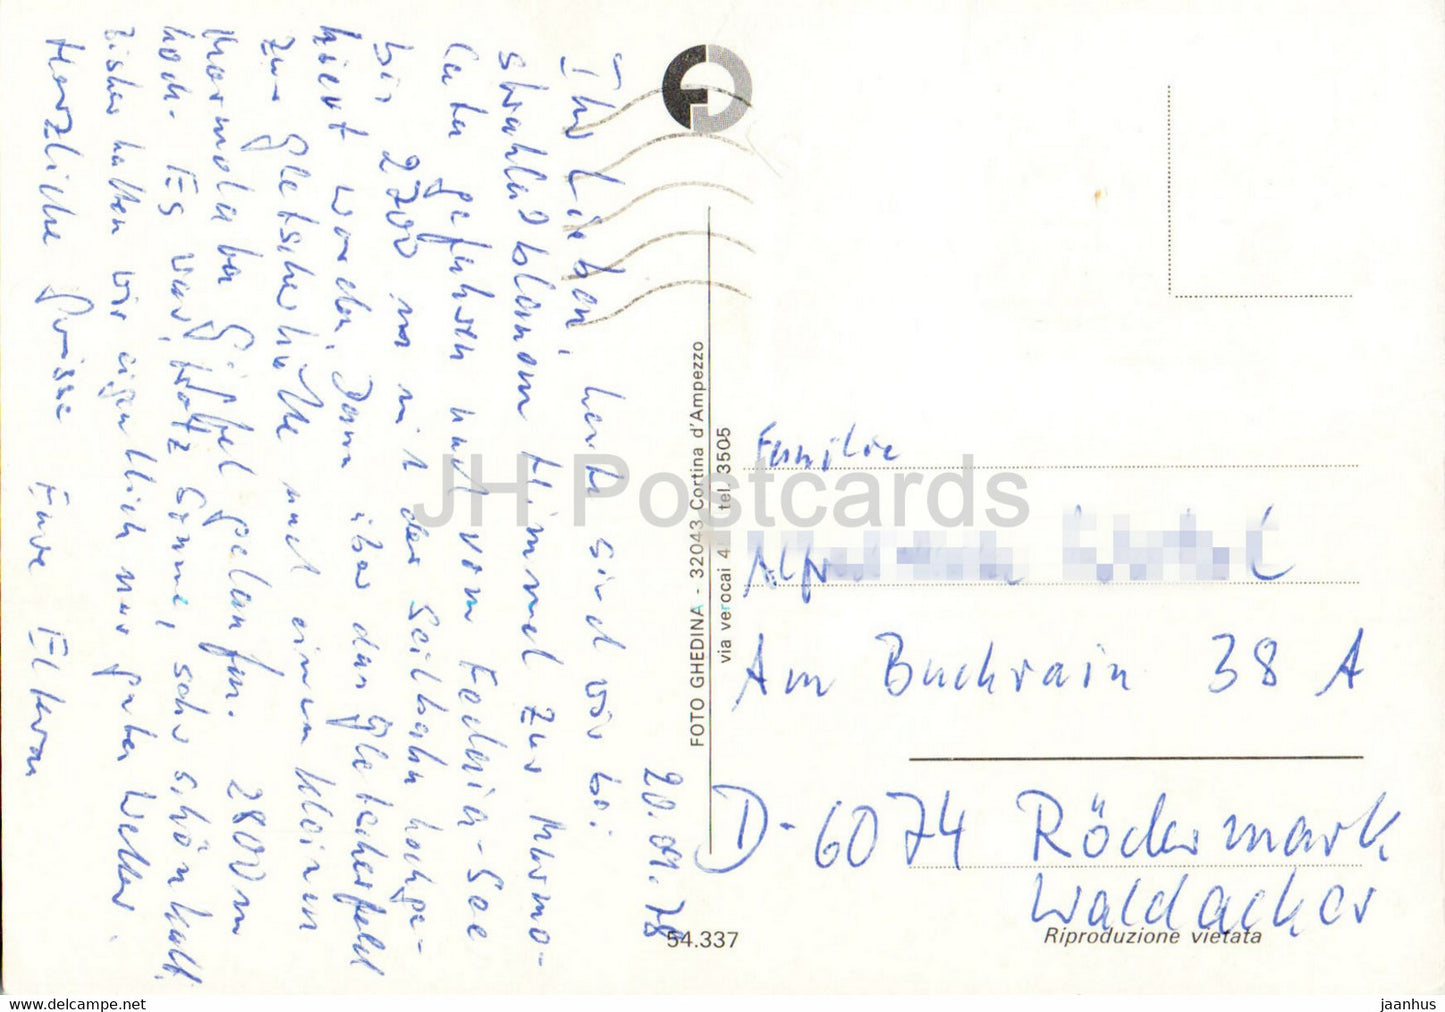 20.09.78
Ihr Lieben, heute sind wir bei
strahlSblauem Himmel zur Marmo-
lata gefahren und vom Fedaia-See
bis 2700 m mit der Seilbahn hochge-
hievt worden. Dann über das Gletscherfeld
zur Gletscherhütte und einen kleinen
Marmolata Gipfel gelaufen. 2800 m
hoch. Es war, trotz Sonne, sehr schön kalt.
Bisher hatten wir eigentlich nur gutes Wetter.
Herzliche Grüsse Eure Eltern
FOTO GHEDINA - 32043 Cortina d'Ampezzo
via verocai 4 tel. 3505
54.337
Familie
Am Buchrain 38 A
D-6074 Rödermark
Waldacker
Riproduzione vietata
JH Postcards
HIP-Postcard.com
jaanhus